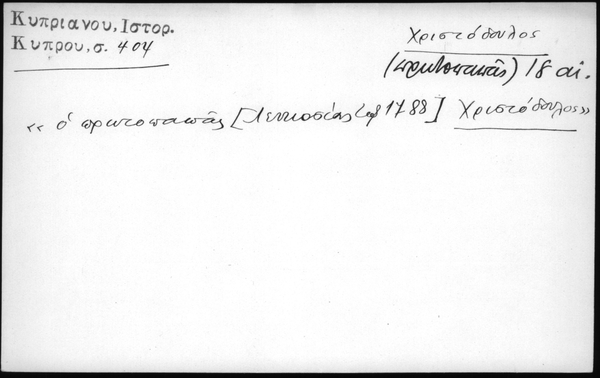 Κυπριανου, Ιστορ.
Κυπρου, σ. 404
Χριστόδουλος
(πρωτοπαπᾶς) 18 αἰ.
« ὁ πρωτοπαπᾶς [Λευκοσίας 1788] Χριστόδουλος»